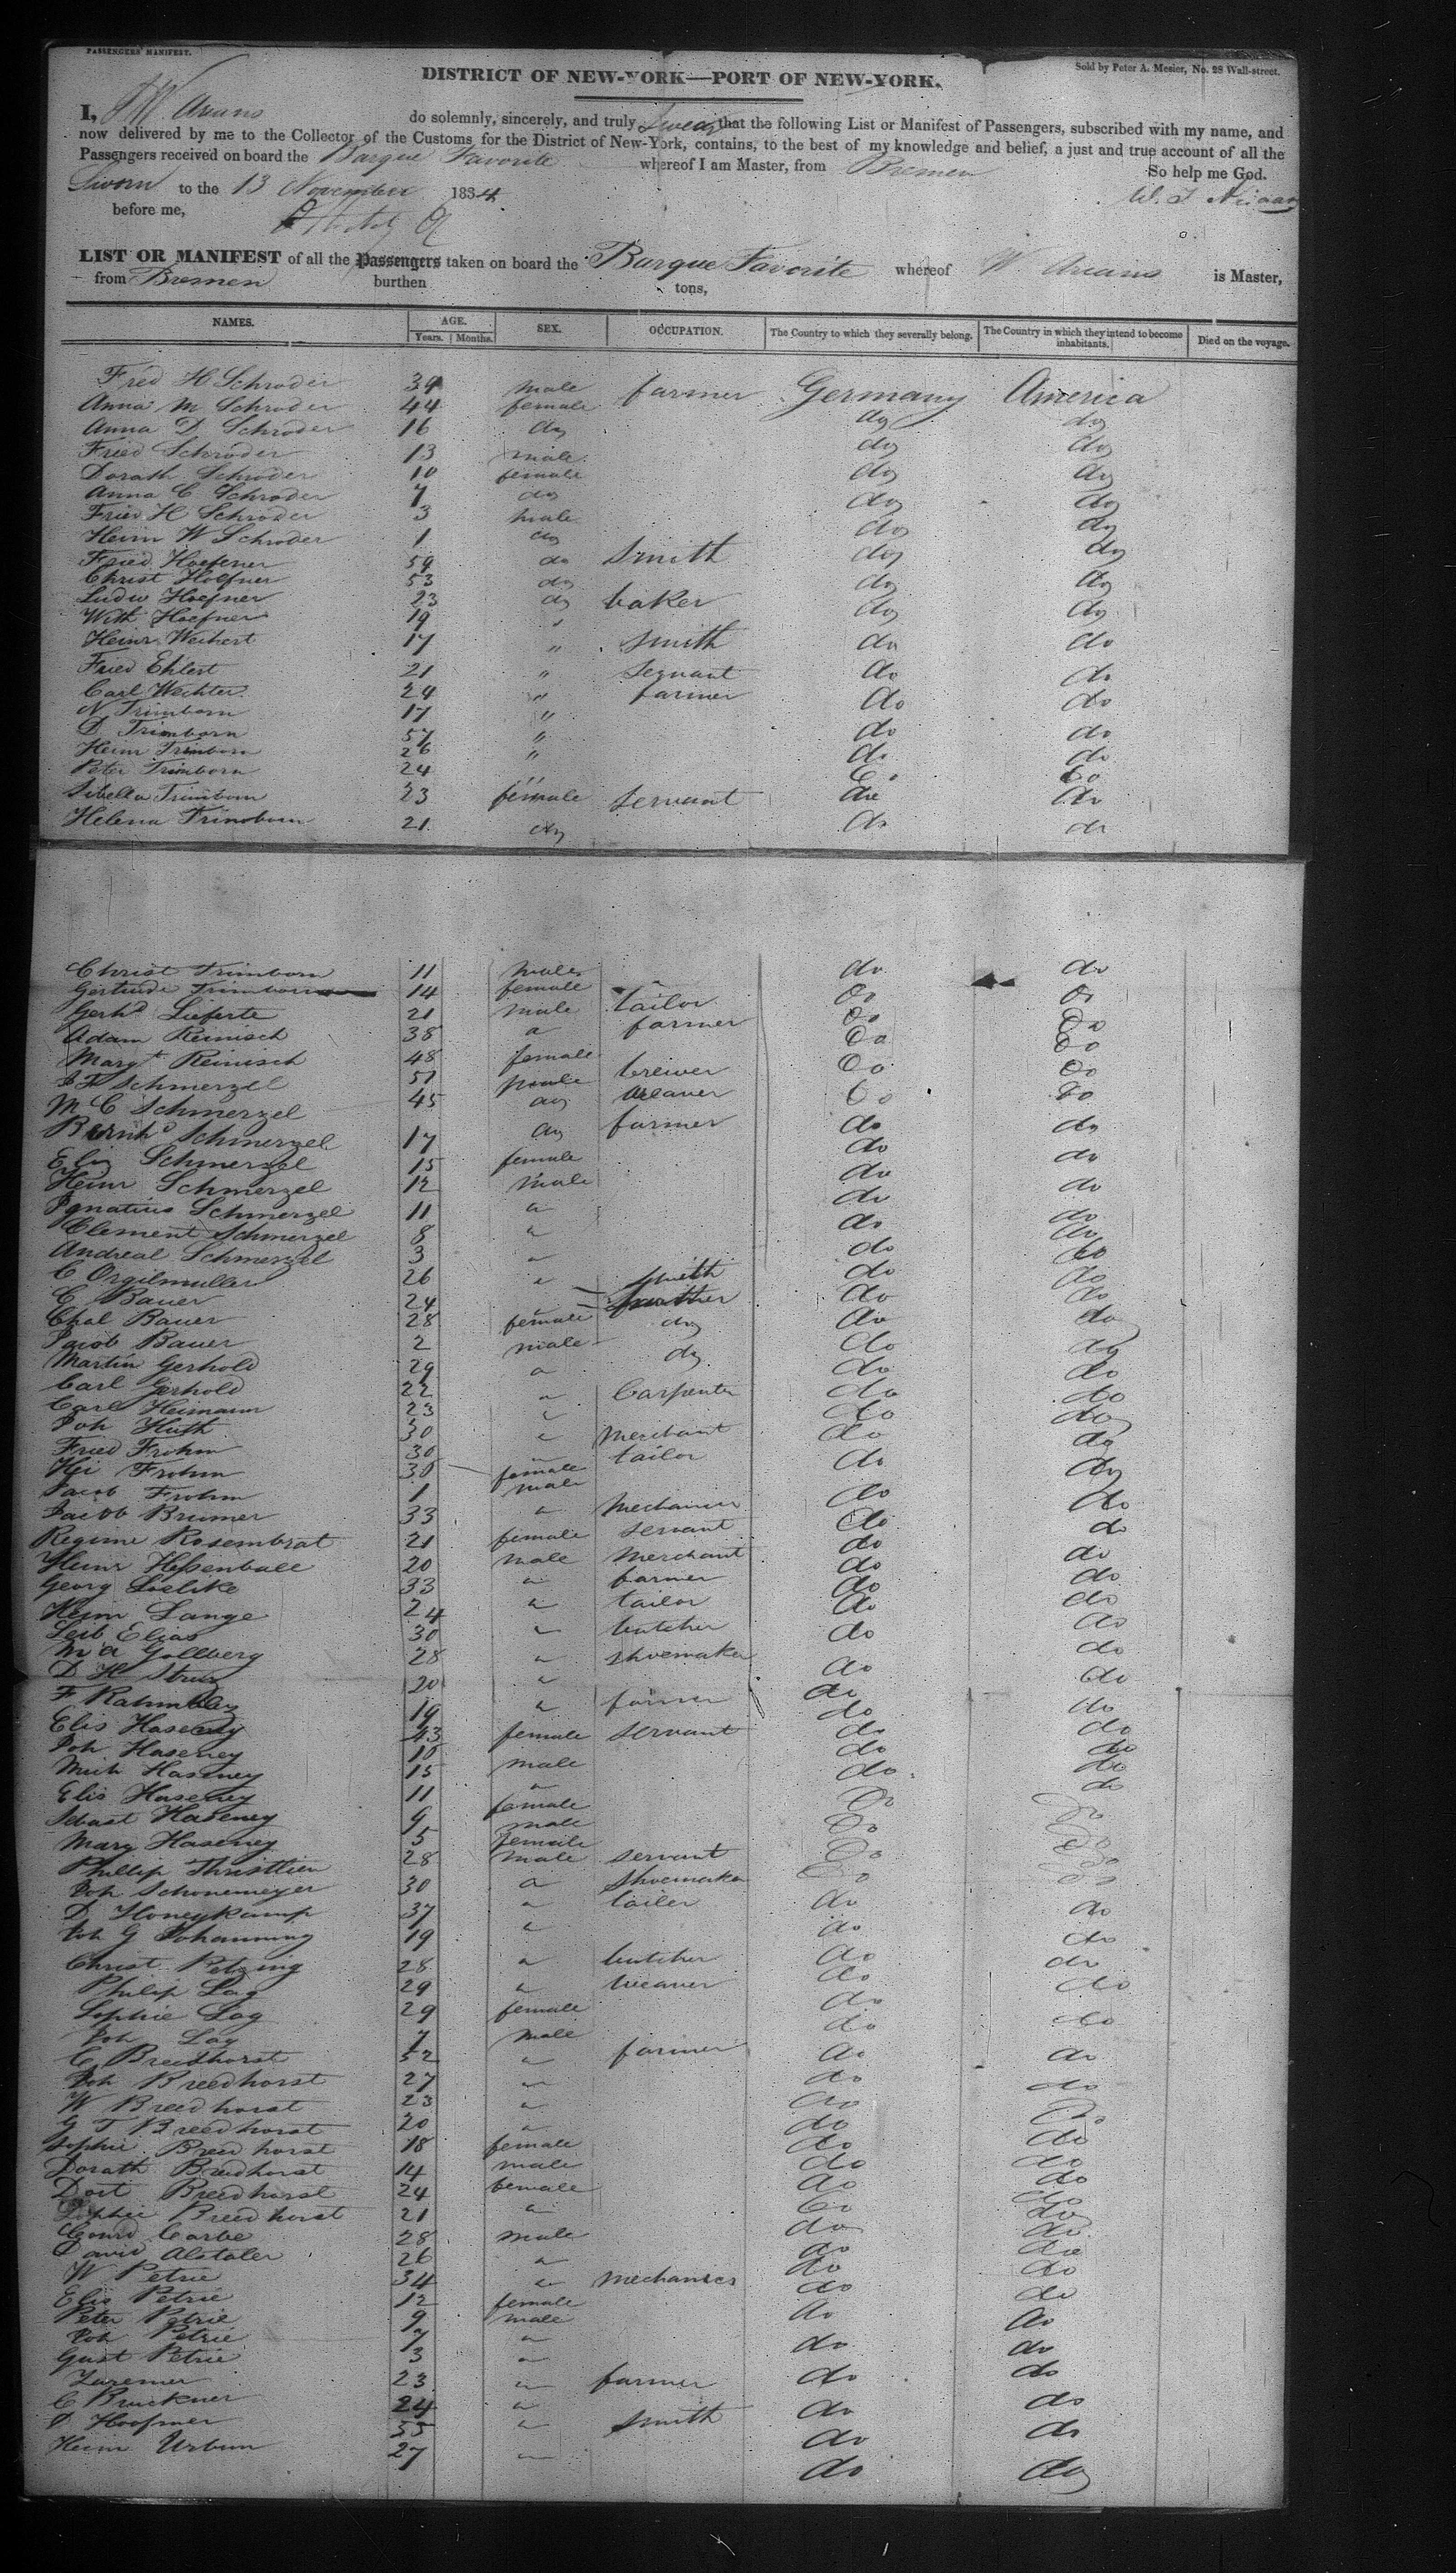 PASSENGERS' MANIFEST.
Sold by Peter A. Mesier, No. 28 Wall-street.
DISTRICT OF NEW-YORK—PORT OF NEW-YORK.
I, W. Arians do solemnly, sincerely, and truly Swear that the following List or Manifest of Passengers, subscribed with my name, and
now delivered by me to the Collector of the Customs for the District of New-York, contains, to the best of my knowledge and belief, a just and true account of all the
Passengers received on board the Barque Favorite whereof I am Master, from Bremen
So help me God.
Sworn to the 13 November 1834
before me,
LIST OR MANIFEST of all the Passengers taken on board the Barque Favorite whereof W Arians is Master,
from Bremen burthen tons,
NAMES. AGE. SEX. OCCUPATION. The Country to which they severally belong. The Country in which they intend to become inhabitants. Died on the voyage.
Years. Months.
Fried H Schroder 39 male farmer Germany America
Anna M Schroder 44 female do do
Anna D Schroder 16 do do do
Fried Schroder 13 male do do
Dorath Schroder 10 female do do
Anna C Schroder 7 do do do
Fried H Schroder 3 male do do
Heinr W Schroder 1 do do do
Fried Hoefner 59 do Smith do do
Christ Hoefner 53 do do do
Ludw Hoefner 23 do baker do do
With Hoefner 19 " do do
Heinr Weihert 17 " Smith do do
Fried Ehlert 21 " Servant do do
Carl Wechter 24 " farmer do do
N Trimborn 17 " do do
D Trimborn 57 " do do
Heinr Trimborn 26 " do do
Peter Trimborn 24 " do do
Sibella Trimborn 23 female Servant do do
Helena Trimborn 21 do do do
Christ Trimborn 11 male do do
Gertrude Trimborn 14 female do do
Gerhd Lieferte 21 male tailor do do
Adam Reinisch 38 " farmer do do
Margt Reinisch 48 female do do
J F Schmerzel 51 male brewer do do
M C Schmerzel 45 do weaver do do
Bernhd Schmerzel 17 do farmer do do
Eliz Schmerzel 15 female do do
Heinr Schmerzel 12 male do do
Ignatius Schmerzel 11 " do do
Clement Schmerzel 8 " do do
Andreal Schmerzel 3 " do do
C Orgilmuller 26 " Smith do do
C Bauer 24 " do do
Chal Bauer 28 female do do do
Jacob Bauer 2 male do do
Martin Gerhold 29 " do do do
Carl Gerhold 22 " Carpenter do do
Carl Heimann 23 " do do
Joh Huth 30 " Merchant do do
Fried Frohm 30 " tailor do do
Hei Frohm 30 female do do
Jacob Frohm 1 male do do
Jacob Brumer 33 " Mechanic do do
Regime Rosembrat 21 female Servant do do
Heinr Hessenball 20 male Merchant do do
Georg Loelike 33 " farmer do do
Heinr Lange 24 " tailor do do
Leib Elias 30 " butcher do do
M A Gollberg 28 " shoemaker do do
D H Strug 20 " do do
F Rahmbley 19 " farmer do do
Elis Haseney 43 female Servant do do
Joh Haseney 18 male do do
Mich Haseney 15 " do do
Elis Haseney 11 female do do
Sebast Haseney 9 male do do
Mary Haseney 5 female do do
Phillip Thrisllien 28 male servant do do
Joh Schonemeyer 30 " Shoemaker do do
D Honeykamp 37 " tailer do do
Joh G Johanning 19 " do do
Christ Petzing 28 " butcher do do
Philip Lag 29 " weaver do do
Sophie Lag 29 female do do
Joh Lag 7 male do do
C Breedhorst 52 " farmer do do
Joh Breedhorst 27 " do do
W Breedhorst 23 " do do
G T Breedhorst 20 " do do
Sophie Breedhorst 18 female do do
Dorath Breedhorst 14 male do do
Dort Breedhorst 24 female do do
Sophie Breedhorst 21 " do do
Conrd Carbe 28 male do do
David Alstaler 26 " do do
W Petrie 34 " Mechanics do do
Elis Petrie 12 female do do
Peter Petrie 9 male do do
Joh Petrie 7 " do do
Gust Petrie 3 " do do
Zaremer 23 " farmer do do
C Bruckner 24 " do do
D Hoofmer 55 " Smith do do
Heinr Urbun 27 " do do